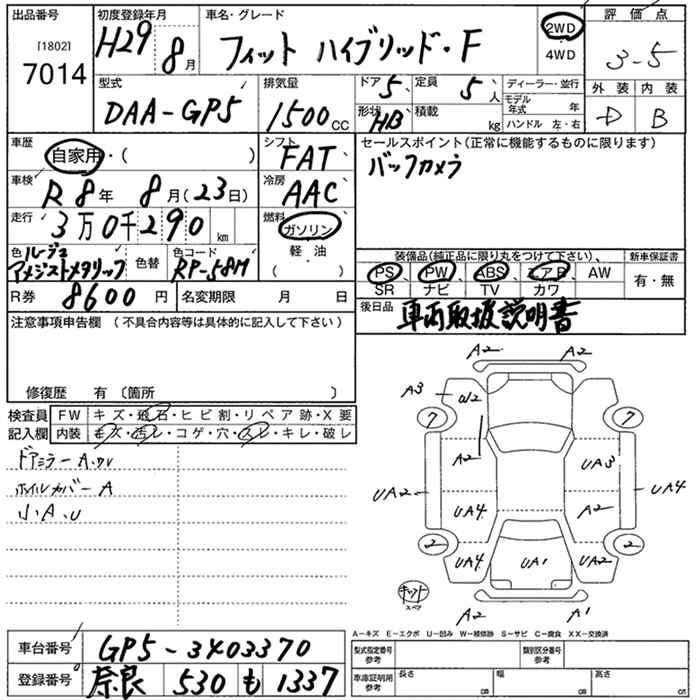 出品番号
[1802]
7014
初度登録年月
H29 8月
車名・グレード
フィット ハイブリッド・F
2WD
4WD
評価点
3-5
外装 内装
D B
型式
DAA-GP5
排気量
1500 CC
ドア 5
定員 5 人
形状 HB
積載 kg
ディーラー・並行
モデル年式 年
ハンドル 左・右
車歴
自家用・( )
車検
R 8年 8月(23日)
走行
3万0千290 km
色 ルージュ
アメジストメタリック
色替
色コード
RP-58M
R券 8600 円
名変期限 月 日
シフト
FAT
冷房
AAC
燃料
ガソリン
軽・油
( )
セールスポイント(正常に機能するものに限ります)
バックカメラ
装備品(純正品に限り丸をつけて下さい)
新車保証書
PS PW ABS エアB AW
SR ナビ TV カワ
有・無
後日品
車両取扱説明書
注意事項申告欄 (不具合内容等は具体的に記入して下さい)
修復歴 有 〔箇所 〕
検査員
記入欄
FW キズ・飛石・ヒビ割・リペア跡・X要
内装 キズ・汚レ・コゲ・穴・スレ・キレ・破レ
ドアミラー A、
ホイルカバー A
小A、U
A2
A2
A3
W2
7
7
A2
UA3
UA2
UA4
UA4
A2
2
2
UA4
UA1
UA2
キット
スペア
A2
A1
A-キズ E-エクボ U-凹み W-補修跡 S-サビ C-腐食 XX-交換済
車台番号
GP5-3403370
登録番号
奈良 530 も 1337
型式指定番号
参考
類別区分番号
参考
車庫証明用
参考
長さ cm
幅 cm
高さ cm